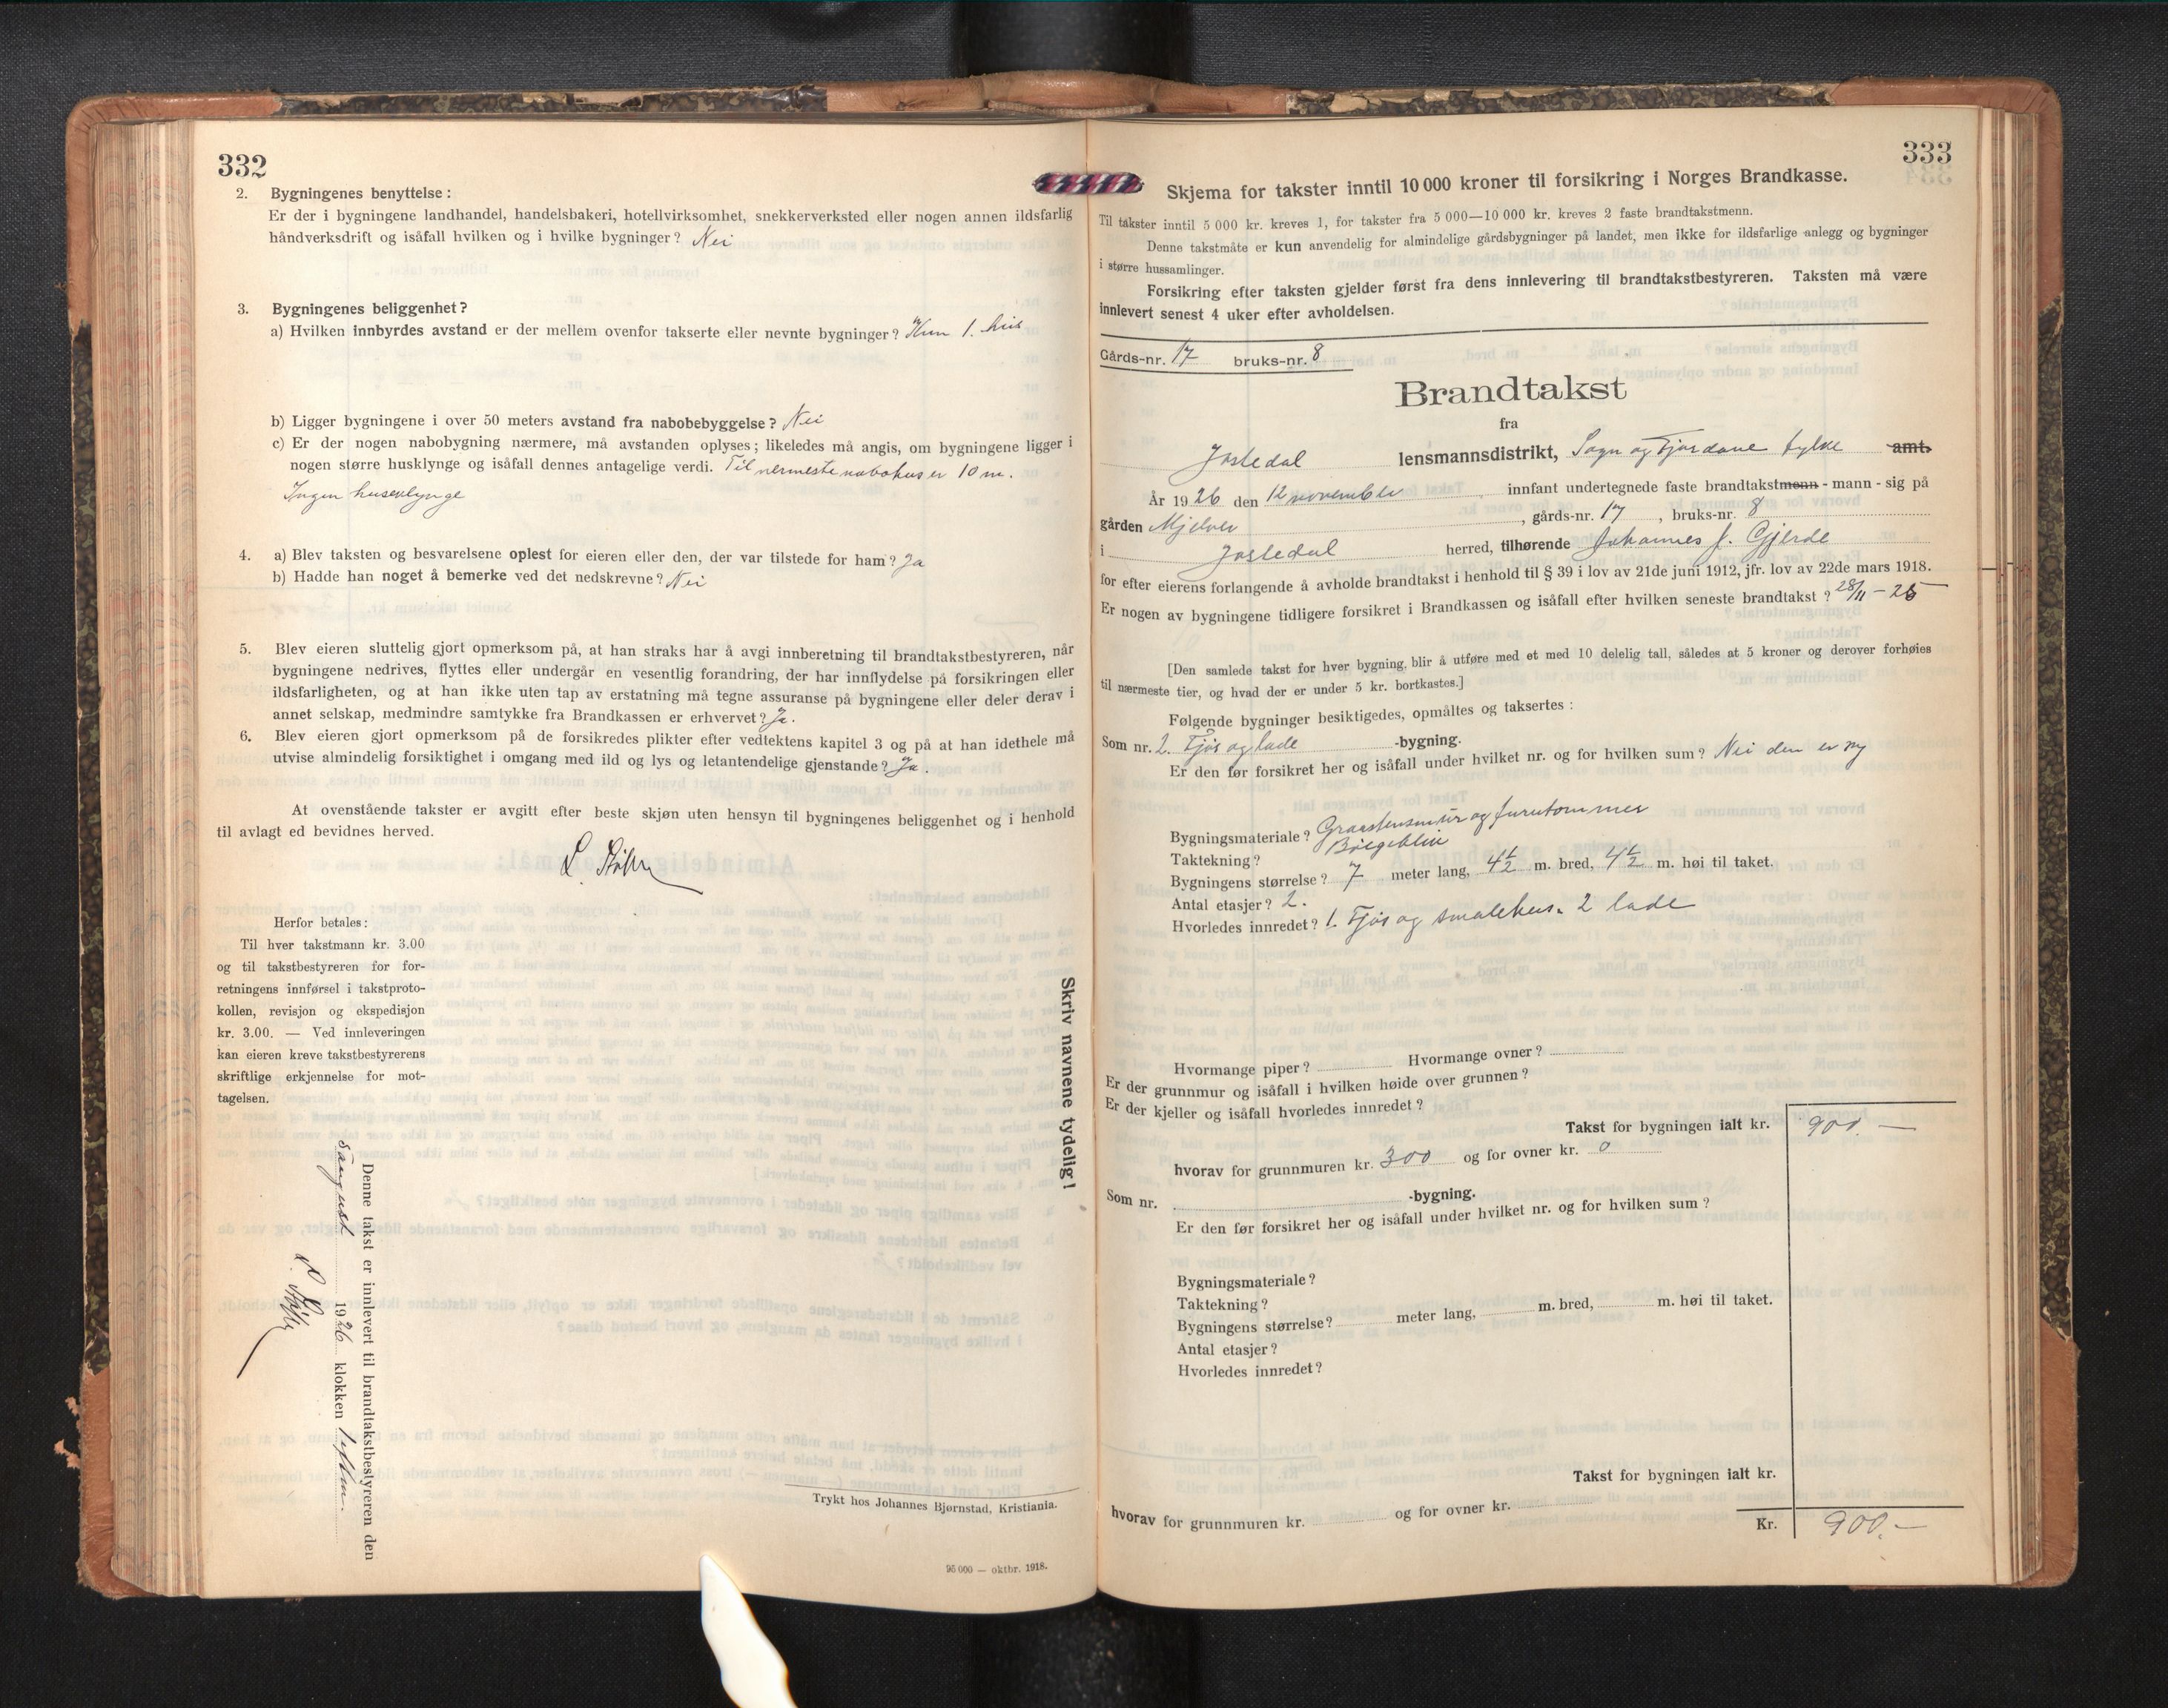 332
2. Bygningenes benyttelse:
Er der i bygningene landhandel, handelsbakeri, hotellvirksomhet, snekkerverksted eller nogen annen ildsfarlig
håndverksdrift og isåfall hvilken og i hvilke bygninger? Nei
3. Bygningenes beliggenhet?
a) Hvilken innbyrdes avstand er der mellem ovenfor takserte eller nevnte bygninger? Kun 1. hus
b) Ligger bygningene i over 50 meters avstand fra nabobebyggelse? Nei
c) Er der nogen nabobygning nærmere, må avstanden oplyses; likeledes må angis, om bygningene ligger i
nogen større husklynge og isåfall dennes antagelige verdi. Til nermeste nabohus er 10 m.
Ingen huseklynge
4. a) Blev taksten og besvarelsene oplest for eieren eller den, der var tilstede for ham? Ja
b) Hadde han noget å bemerke ved det nedskrevne? Nei
5. Blev eieren sluttelig gjort opmerksom på, at han straks har å avgi innberetning til brandtakstbestyreren, når
bygningene nedrives, flyttes eller undergår en vesentlig forandring, der har innflydelse på forsikringen eller
ildsfarligheten, og at han ikke uten tap av erstatning må tegne assuranse på bygningene eller deler derav i
annet selskap, medmindre samtykke fra Brandkassen er erhvervet? Ja.
6. Blev eieren gjort opmerksom på de forsikredes plikter efter vedtektens kapitel 3 og på at han idethele må
utvise almindelig forsiktighet i omgang med ild og lys og letantendelige gjenstande? Ja.
At ovenstående takster er avgitt efter beste skjøn uten hensyn til bygningenes beliggenhet og i henhold
til avlagt ed bevidnes herved.
Herfor betales:
Til hver takstmann kr. 3.00
og til takstbestyreren for for-
retningens innførsel i takstproto-
kollen, revisjon og ekspedisjon
kr. 3.00. — Ved innleveringen
kan eieren kreve takstbestyrerens
skriftlige erkjennelse for mot-
tagelsen.
Denne takst er innlevert til brandtakstbestyreren den
1926 klokken
Skriv navnene tydelig!
Trykt hos Johannes Bjørnstad, Kristiania.
95 000 — oktbr. 1918.
333
Skjema for takster inntil 10 000 kroner til forsikring i Norges Brandkasse.
Til takster inntil 5 000 kr. kreves 1, for takster fra 5 000—10 000 kr. kreves 2 faste brandtakstmenn.
Denne takstmåte er kun anvendelig for almindelige gårdsbygninger på landet, men ikke for ildsfarlige anlegg og bygninger
i større hussamlinger.
Forsikring efter taksten gjelder først fra dens innlevering til brandtakstbestyreren. Taksten må være
innlevert senest 4 uker efter avholdelsen.
Gårds-nr. 17 bruks-nr. 8
Brandtakst
fra
Jostedal lensmannsdistrikt, Sogn og Fjordane fylke amt.
År 1926 den 12 november innfant undertegnede faste brandtakstmenn - mann - sig på
gården Mjelver, gårds-nr. 17, bruks-nr. 8
i Jostedal herred, tilhørende Johannes J. Gjerde
for efter eierens forlangende å avholde brandtakst i henhold til § 39 i lov av 21de juni 1912, jfr. lov av 22de mars 1918.
Er nogen av bygningene tidligere forsikret i Brandkassen og isåfall efter hvilken seneste brandtakst? 28/11 - 25
[Den samlede takst for hver bygning, blir å utføre med et med 10 delelig tall, således at 5 kroner og derover forhøies
til nærmeste tier, og hvad der er under 5 kr. bortkastes.]
Følgende bygninger besiktigedes, opmåltes og taksertes:
Som nr. 2. Fjøs og lade -bygning.
Er den før forsikret her og isåfall under hvilket nr. og for hvilken sum? Nei den er ny
Bygningsmateriale? Graastensmur og furutømmer
Taktekning? Bølgeblik
Bygningens størrelse? 7 meter lang, 4 1/2 m. bred, 4 1/2 m. høi til taket.
Antal etasjer? 2.
Hvorledes innredet? 1. Fjøs og smalehus. 2 lade
Hvormange piper? Hvormange ovner?
Er der grunnmur og isåfall i hvilken høide over grunnen?
Er der kjeller og isåfall hvorledes innredet?
Takst for bygningen ialt kr. 900.—
hvorav for grunnmuren kr. 300 og for ovner kr. 0
Som nr. -bygning.
Er den før forsikret her og isåfall under hvilket nr. og for hvilken sum?
Bygningsmateriale?
Taktekning?
Bygningens størrelse? meter lang, m. bred, m. høi til taket.
Antal etasjer?
Hvorledes innredet?
Takst for bygningen ialt kr.
hvorav for grunnmuren kr. og for ovner kr.
Kr. 900.—